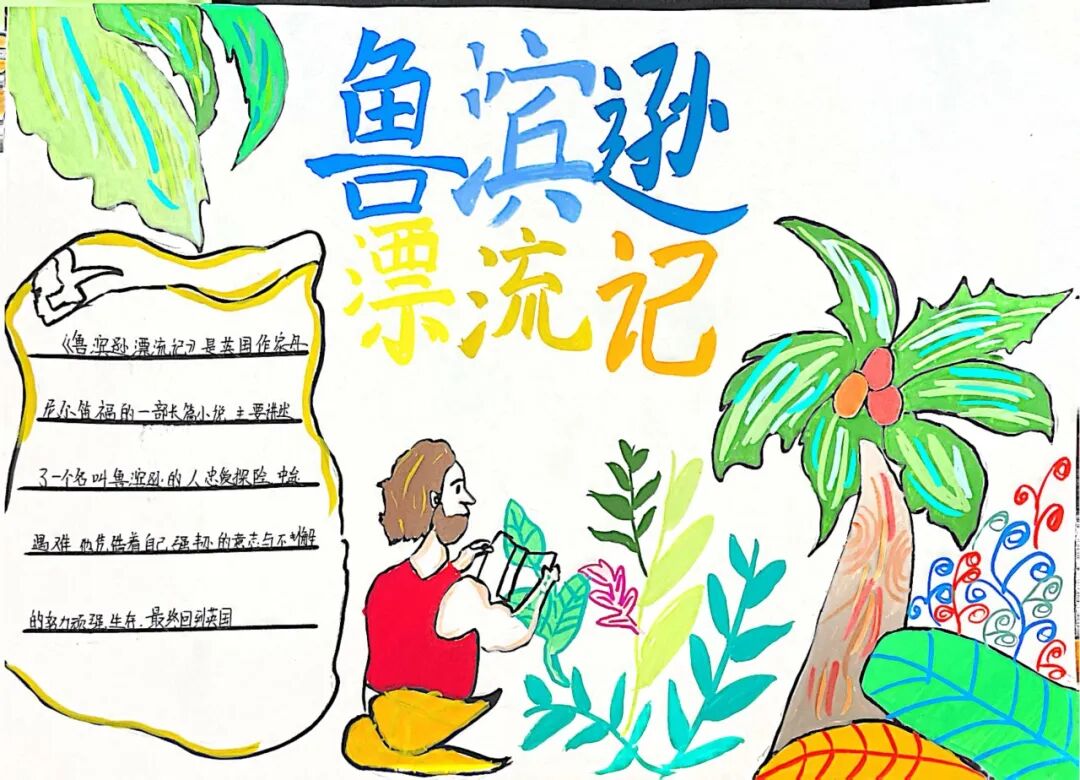 鲁滨逊
漂流记
《鲁滨逊漂流记》是英国作家丹
尼尔笛福的一部长篇小说 主要讲述
了一个名叫鲁滨逊的人忠爱探险
遇难 他凭借着自己强韧的意志与不懈
的努力顽强生存.最终回到英国